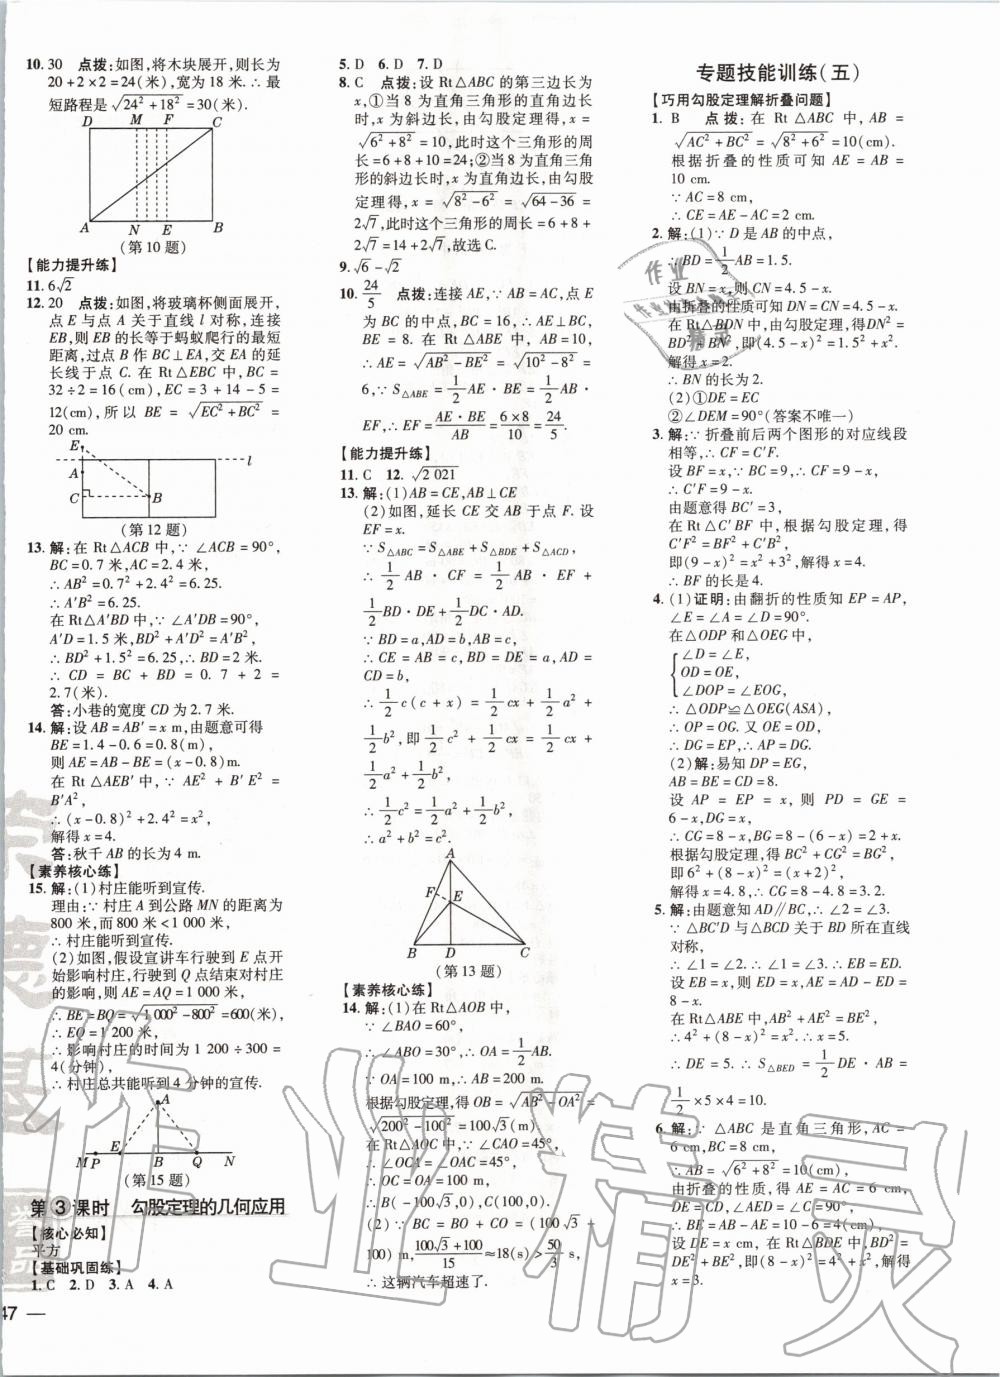 10. 30 点拨:如图,将木块展开,则长为
20+2×2=24(米),宽为 18 米.∴最
短路程是√(24²+18²)=30(米).
D M F C
A N E B
(第 10 题)
【能力提升练】
11. 6√2
12. 20 点拨:如图,将玻璃杯侧面展开,
点 E 与点 A 关于直线 l 对称,连接
EB,则 EB 的长等于蚂蚁爬行的最短
距离,过点 B 作 BC⊥EA,交 EA 的延
长线于点 C. 在 Rt△EBC 中,BC=
32÷2=16(cm),EC=3+14-5=
12(cm),所以 BE=√(EC²+BC²)=
20 cm.
E
A l
C B
(第 12 题)
13. 解:在 Rt△ACB 中,∵∠ACB=90°,
BC=0.7 米,AC=2.4 米,
∴AB²=0.7²+2.4²=6.25.
∴A'B²=6.25.
在 Rt△A'BD 中,∵∠A'DB=90°,
A'D=1.5 米,BD²+A'D²=A'B²,
∴BD²+1.5²=6.25,∴BD=2 米.
∴CD=BC+BD=0.7+2=
2.7(米).
答:小巷的宽度 CD 为 2.7 米.
14. 解:设 AB=AB'=x m,由题意可得
BE=1.4-0.6=0.8(m),
则 AE=AB-BE=(x-0.8)m.
在 Rt△AEB' 中,∵AE²+B'E²=
B'A²,
∴(x-0.8)²+2.4²=x²,
解得 x=4.
答:秋千 AB 的长为 4 m.
【素养核心练】
15. 解:(1)村庄能听到宣传.
理由:∵村庄 A 到公路 MN 的距离为
800 米,而 800 米<1 000 米,
∴村庄能听到宣传.
(2)如图,假设宣讲车行驶到 E 点开
始影响村庄,行驶到 Q 点结束对村庄
的影响,则 AE=AQ=1 000 米,
∴BE=BQ=√(1 000²-800²)=600(米),
∴EQ=1 200 米,
∴影响村庄的时间为 1 200÷300=
4(分钟),
∴村庄总共能听到 4 分钟的宣传.
A
M P E B Q N
(第 15 题)
第 3 课时 勾股定理的几何应用
【核心必知】
平方
【基础巩固练】
1. C 2. D 3. A 4. A
47 —
5. D 6. D 7. D
8. C 点拨:设 Rt△ABC 的第三边长为
x,①当 8 为直角三角形的直角边长
时,x 为斜边长,由勾股定理得,x=
√(6²+8²)=10,此时这个三角形的周
长=6+8+10=24;②当 8 为直角三角
形的斜边长时,x 为直角边长,由勾股
定理得,x=√(8²-6²)=√(64-36)=
2√7,此时这个三角形的周长=6+8+
2√7=14+2√7,故选 C.
9. √6-√2
10. 24/5 点拨:连接 AE,∵AB=AC,点 E
为 BC 的中点,BC=16,∴AE⊥BC,
BE=8. 在 Rt△ABE 中,AB=10,
∴AE=√(AB²-BE²)=√(10²-8²)=
6,∵S△ABE=1/2 AE·BE=1/2 AB·
EF,∴EF=AE·BE/AB=6×8/10=24/5.
【能力提升练】
11. C 12. √2 021
13. 解:(1)AB=CE,AB⊥CE
(2)如图,延长 CE 交 AB 于点 F. 设
EF=x.
∵S△ABC=S△ABE+S△BDE+S△ACD,
∴1/2 AB·CF=1/2 AB·EF+
1/2 BD·DE+1/2 DC·AD.
∵BD=a,AD=b,AB=c,
∴CE=AB=c,BD=DE=a,AD=
CD=b,
∴1/2 c(c+x)=1/2 cx+1/2 a²+
1/2 b²,即 1/2 c²+1/2 cx=1/2 cx+
1/2 a²+1/2 b²,
∴1/2 c²=1/2 a²+1/2 b².
∴a²+b²=c².
A
F E
B D C
(第 13 题)
【素养核心练】
14. 解:(1)在 Rt△AOB 中,
∵∠BAO=60°,
∴∠ABO=30°,∴OA=1/2 AB.
∵OA=100 m,∴AB=200 m.
根据勾股定理,得 OB=√(AB²-OA²)=
√(200²-100²)=100√3(m).
在 Rt△AOC 中,∵∠CAO=45°,
∴∠OCA=∠OAC=45°,
∴OC=OA=100 m,
∴B(-100√3,0),C(100,0).
(2)∵BC=BO+CO=(100√3+
100)m,(100√3+100)/15≈18(s)>50/3 s,
∴这辆汽车超速了.
专题技能训练(五)
【巧用勾股定理解折叠问题】
1. B 点拨:在 Rt△ABC 中,AB=
√(AC²+BC²)=√(8²+6²)=10(cm).
根据折叠的性质可知 AE=AB=
10 cm.
∵AC=8 cm,
∴CE=AE-AC=2 cm.
2. 解:(1)∵D 是 AB 的中点,
∴BD=1/2 AB=1.5.
设 BN=x,则 CN=4.5-x.
由折叠的性质可知 DN=CN=4.5-x.
在 Rt△BDN 中,由勾股定理,得DN²=
BD²+BN²,即(4.5-x)²=1.5²+x².
解得 x=2.
∴BN 的长为 2.
(2)①DE=EC
②∠DEM=90°(答案不唯一)
3. 解:∵折叠前后两个图形的对应线段
相等,∴CF=C'F.
设 BF=x,∵BC=9,∴CF=9-x,
∴C'F=9-x.
由题意得 BC'=3,
在 Rt△C'BF 中,根据勾股定理,得
C'F²=BF²+C'B²,
即(9-x)²=x²+3²,解得 x=4.
∴BF 的长是 4.
4. (1)证明:由翻折的性质知 EP=AP,
∠E=∠A=∠D=90°.
在△ODP 和△OEG 中,
∠D=∠E,
OD=OE,
∠DOP=∠EOG,
∴△ODP≌△OEG(ASA),
∴OP=OG. 又 OE=OD,
∴DG=EP,∴AP=DG.
(2)解:易知 DP=EG,
AB=BE=CD=8.
设 AP=EP=x,则 PD=GE=
6-x,DG=x,
∴CG=8-x,BG=8-(6-x)=2+x.
根据勾股定理,得 BC²+CG²=BG²,
即 6²+(8-x)²=(x+2)²,
解得 x=4.8,∴CG=8-4.8=3.2.
5. 解:由题意知 AD∥BC,∴∠2=∠3.
∵△BC'D 与△BCD 关于 BD 所在直线
对称,
∴∠1=∠2,∴∠1=∠3,∴EB=ED.
设 EB=ED=x,则 AE=AD-ED=
8-x.
在 Rt△ABE 中,AB²+AE²=BE²,
∴4²+(8-x)²=x²,∴x=5.
∴DE=5.∴S△BED=1/2 DE·AB=
1/2×5×4=10.
6. 解:∵△ABC 是直角三角形,AC=
6 cm,BC=8 cm,
∴AB=√(6²+8²)=10(cm).
由折叠,得 AE=AC=6 cm,∠AED=
∠C=90°,
∴BE=AB-AE=10-6=4(cm).
设 DE=x cm,在 Rt△DEB 中,BD²=
DE²+BE²,即(8-x)²=x²+4²,解得
x=3.
作业
精灵
作业精灵